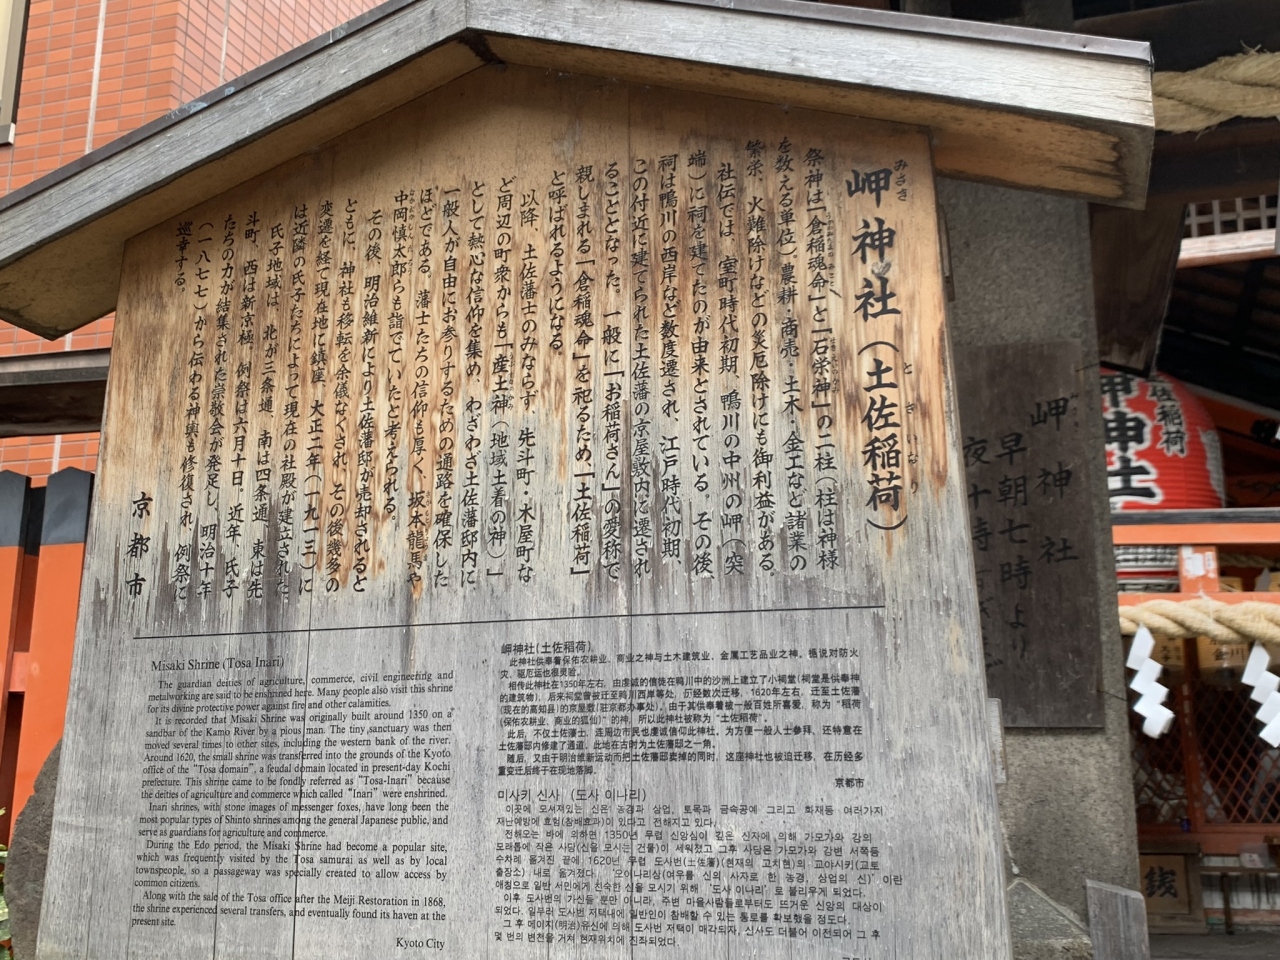 岬神社（土佐稲荷）
祭神は「倉稲魂命」と「石栄神」の二柱（柱は神様
を数える単位）。農耕・商売・土木・金工など諸業の
繁栄、火難除けなどの災厄除けにも御利益がある。
社伝では、室町時代初期、鴨川の中州の岬（突
端）に祠を建てたのが由来とされている。その後、
祠は鴨川の西岸など数度遷され、江戸時代初期、
この付近に建てられた土佐藩の京屋敷内に遷され
ることとなった。一般に「お稲荷さん」の愛称で
親しまれる「倉稲魂命」を祀るため、「土佐稲荷」
と呼ばれるようになる。
以降、土佐藩士のみならず、先斗町・木屋町な
ど周辺の町衆からも「産土神（地域土着の神）」
として熱心な信仰を集め、わざわざ土佐藩邸内に
一般人が自由にお参りするための通路を確保した
ほどである。藩士たちの信仰も厚く、坂本龍馬や
中岡慎太郎らも詣でていたと考えられる。
その後、明治維新により土佐藩邸が売却されると
ともに、神社も移転を余儀なくされ、その後幾多の
変遷を経て現在地に鎮座、大正二年（一九一三）に
は近隣の氏子たちによって現在の社殿が建立された。
氏子地域は、北が三条通、南は四条通、東は先
斗町、西は新京極。例祭は六月十日。近年、氏子
たちの力が結集された崇敬会が発足し、明治十年
（一八七七）から伝わる神輿も修復され、例祭に
巡幸する。
京都市
Misaki Shrine (Tosa Inari)
The guardian deities of agriculture, commerce, civil engineering and
metalworking are said to be enshrined here. Many people also visit this shrine
for its divine protective power against fire and other calamities.
It is recorded that Misaki Shrine was originally built around 1350 on a
sandbar of the Kamo River by a pious man. The tiny sanctuary was then
moved several times to other sites, including the western bank of the river.
Around 1620, the small shrine was transferred into the grounds of the Kyoto
office of the "Tosa domain", a feudal domain located in present-day Kochi
prefecture. This shrine came to be fondly referred as "Tosa-Inari" because
the deities of agriculture and commerce which called "Inari" were enshrined.
Inari shrines, with stone images of messenger foxes, have long been the
most popular types of Shinto shrines among the general Japanese public, and
serve as guardians for agriculture and commerce.
During the Edo period, the Misaki Shrine had become a popular site,
which was frequently visited by the Tosa samurai as well as by local
townspeople, so a passageway was specially created to allow access by
common citizens.
Along with the sale of the Tosa office after the Meiji Restoration in 1868,
the shrine experienced several transfers, and eventually found its haven at the
present site.
Kyoto City
岬神社(土佐稲荷)
此神社供奉着保佑农耕业、商业之神与土木建筑业、金属工艺品业之神。据说对防火
灾、驱厄运也很灵验。
相传此神社在1350年左右，由虔诚的信徒在鸭川中的沙洲上建立了小祠堂(祠堂是供奉神
的建筑物)，后来祠堂曾被迁至鸭川西岸等处，历经数次迁移，1620年左右，迁至土佐藩
(现在的高知县)的京屋敷(驻京都办事处)。由于其供奉着被一般百姓所喜爱，称为“稻荷
(保佑农耕业、商业的狐仙)”的神，所以此神社被称为“土佐稻荷”。
此后，不仅土佐藩士，连周边市民也虔诚信仰此神社。为方便一般人士参拜，还特意在
土佐藩邸内修建了通道。此地在古时为土佐藩邸之一角。
随后，又由于明治维新运动而把土佐藩邸卖掉的同时，这座神社也被迫迁移，在历经多
重变迁后终于在现地落脚。
京都市
미사키 신사 (도사 이나리)
이곳에 모셔져있는 신은 농경과 상업, 토목과 금속공예 그리고 화재등 여러가지
재난예방에 효험(참배효과)이 있다고 전해지고 있다.
전해오는 바에 의하면 1350년 무렵 신앙심이 깊은 신자에 의해 가모가와 강의
모래톱에 작은 사당(신을 모시는 건물)이 세워졌고 그후 사당은 가모가와 강변 서쪽등
수차례 옮겨진 끝에 1620년 무렵 도사번(土佐藩)(현재의 고치현)의 교야시키(교토
출장소) 내로 옮겨졌다. '오이나리상(여우를 신의 사자로 한 농경, 상업의 신)' 이란
애칭으로 일반 서민에게 친숙한 신을 모시기 위해 '도사 이나리' 로 불리우게 되었다.
이후 도사번의 가신들 뿐만 아니라, 주변 마을사람들로부터도 뜨거운 신앙의 대상이
되었다. 일부러 도사번 저택내에 일반인이 참배할 수 있는 통로를 확보했을 정도다.
그 후 메이지(明治)유신에 의해 도사번 저택이 매각되자, 신사도 더불어 이전되어 그 후
몇 번의 변천을 거쳐 현재위치에 진좌되었다.
岬神社
早朝七時より
夜十時
佐稲荷
岬神社